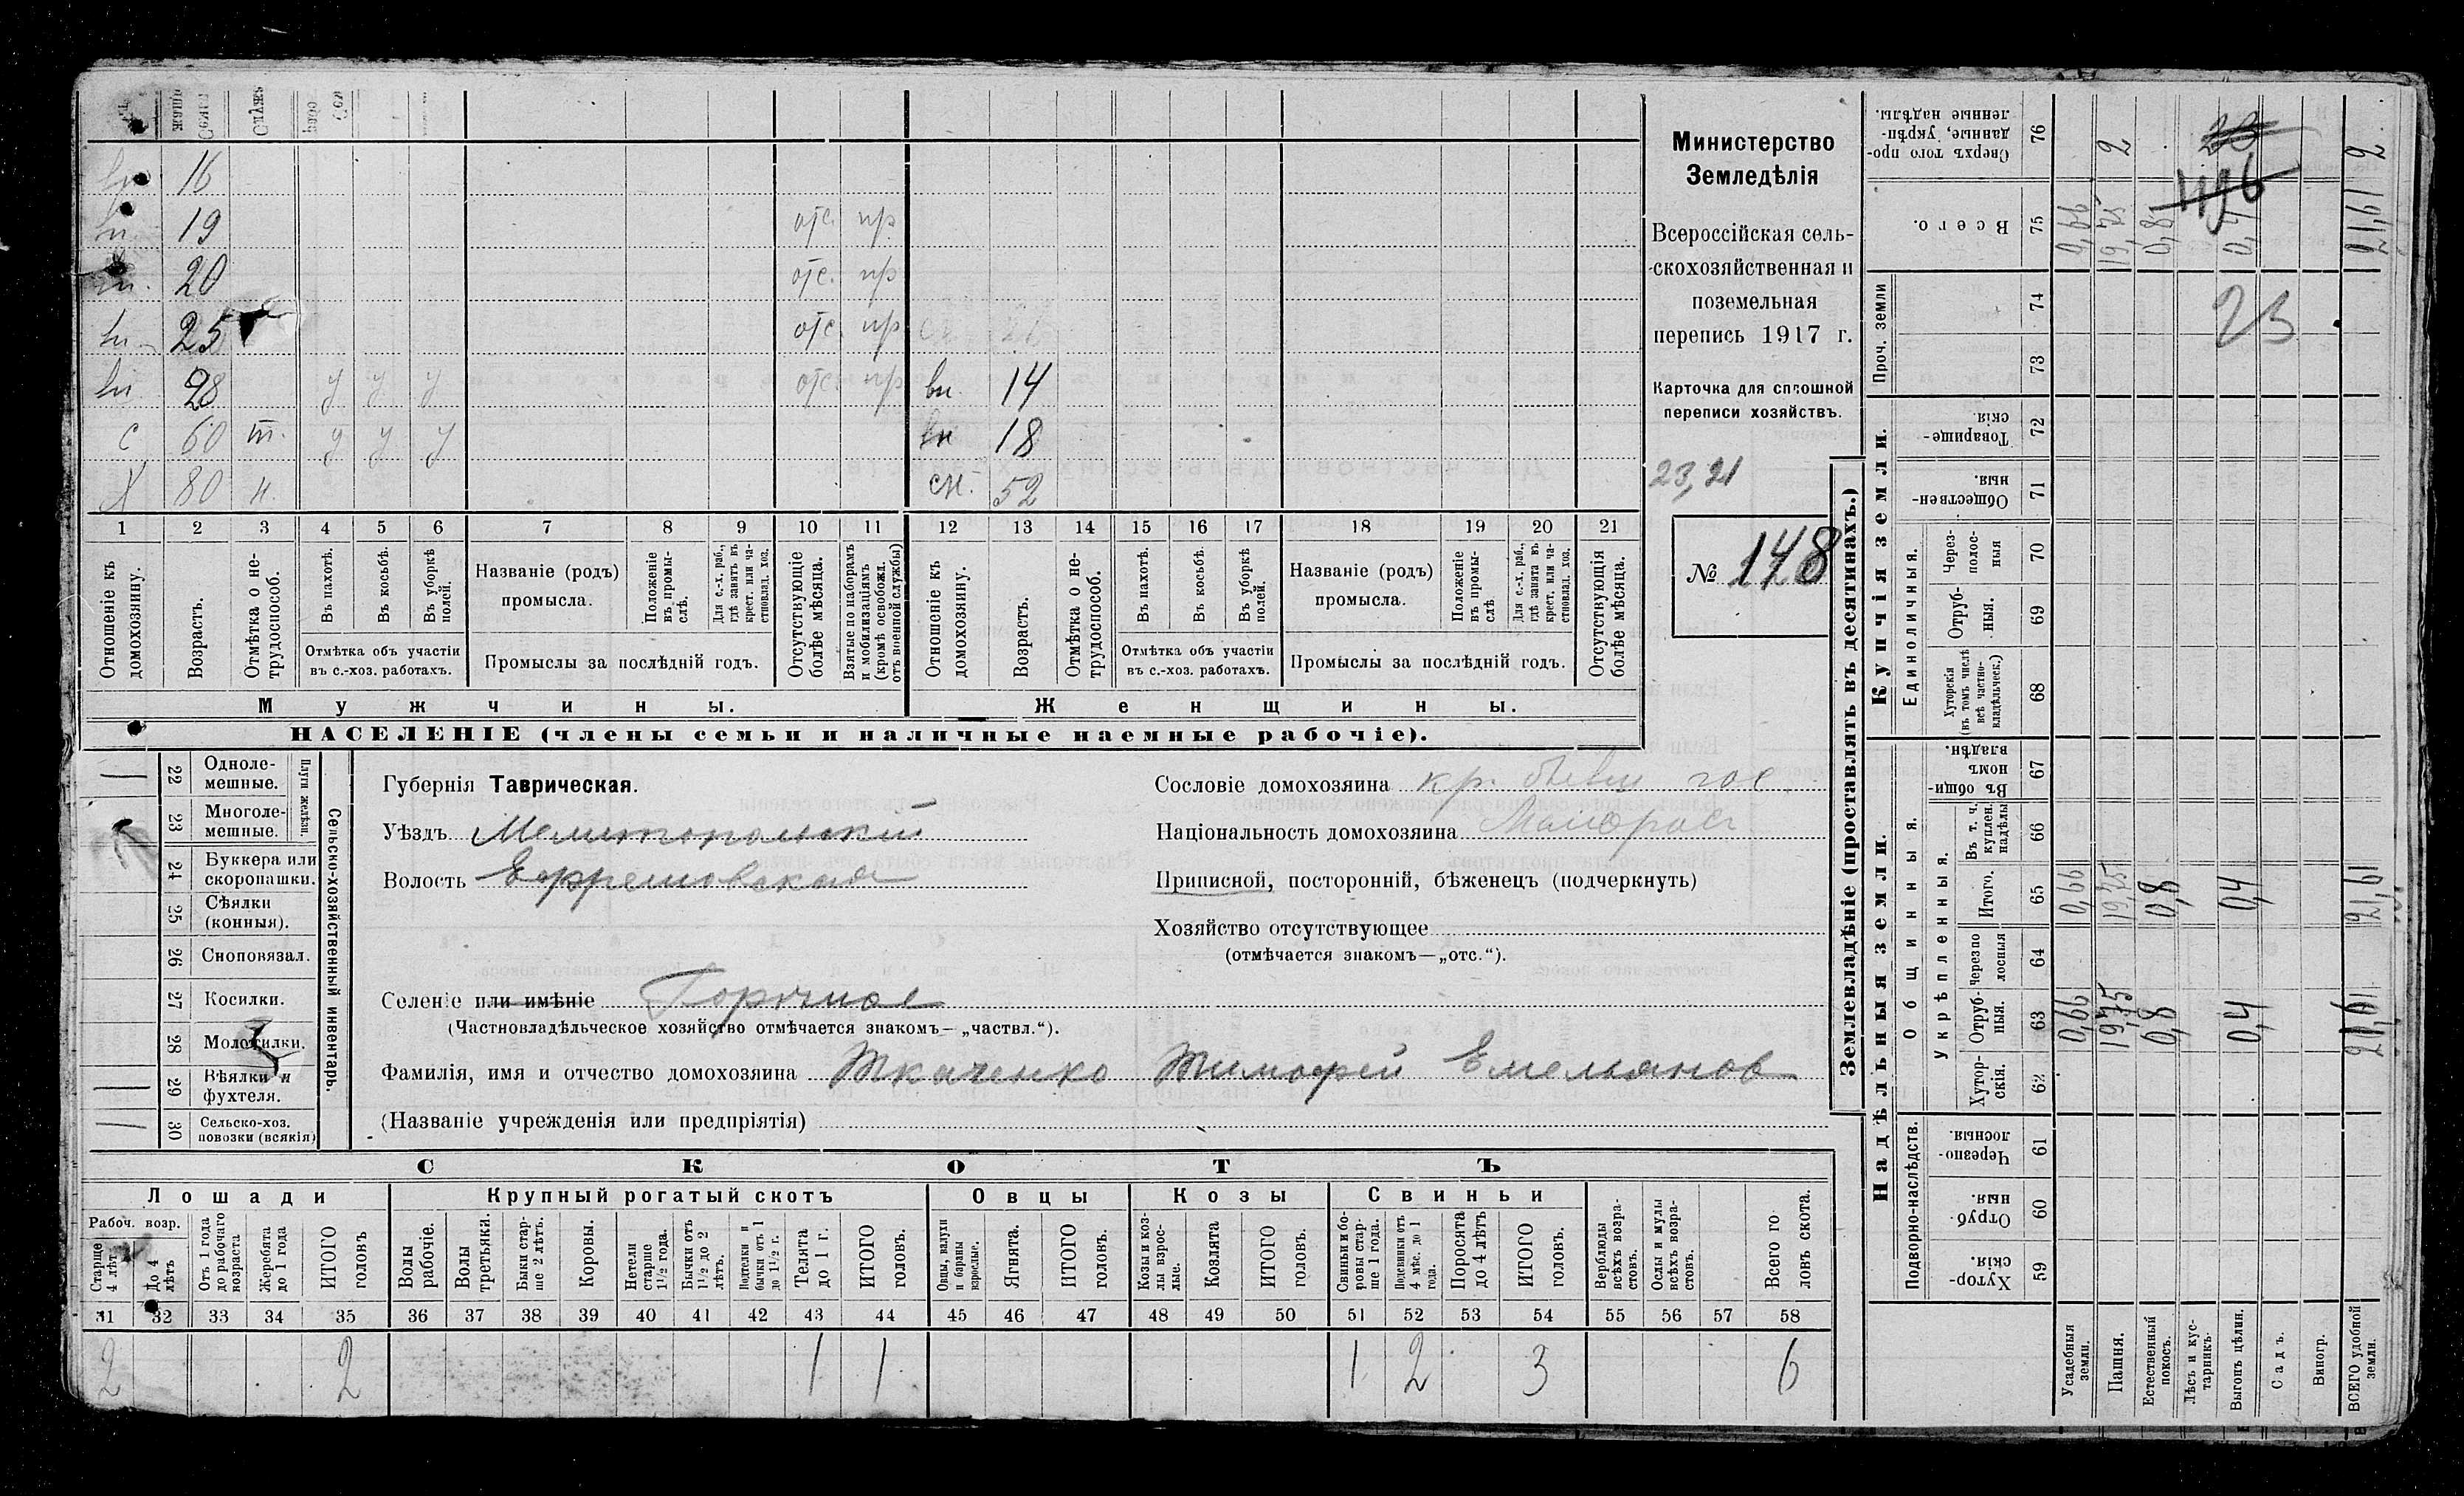 16
19 отс. пр.
20 отс. пр
25 отс. пр
вн. 28 у у у отс. пр вн. 14
с 60 т. у у у вн 18
Х 80 н. сн. 52
1 2 3 4 5 6 7 8 9 10 11 12 13 14 15 16 17 18 19 20 21
Отношеніе къ домохозяину.
Возрастъ.
Отмѣтка о не-
трудоспособ.
Въ пахотѣ.
Въ косьбѣ.
Въ уборкѣ
полей.
Отмѣтка объ участіи
въ с.-хоз. работахъ.
Названіе (родъ)
промысла.
Положеніе
въ промы-
слѣ.
Для с.-х. раб.,
гдѣ занятъ въ
крест. или ча-
стновлад. хоз.
Промыслы за послѣдній годъ.
Отсутствующіе
болѣе мѣсяца.
Взятые по наборамъ
и мобилизаціямъ
(кромѣ освобожд.
отъ военной службы)
Отношеніе къ
домохозяину.
Возрастъ.
Отмѣтка о не-
трудоспособ.
Въ пахотѣ.
Въ косьбѣ.
Въ уборкѣ
полей.
Отмѣтка объ участіи
въ с.-хоз. работахъ.
Названіе (родъ)
промысла.
Положеніе
въ промы-
слѣ
Для с.-х. раб.,
гдѣ занята въ
крест. или ча-
стновлад. хоз.
Промыслы за послѣдній годъ.
Отсутствующія
болѣе мѣсяца.
Мужчины.
Женщины.
НАСЕЛЕНІЕ (члены семьи и наличные наемные рабочіе).
Министерство
Земледѣлія
Всероссійская сель-
скохозяйственная и
поземельная
перепись 1917 г.
Карточка для сплошной
переписи хозяйствъ.
23,21
№ 148
22 Одноле-
мешные.
23 Многоле-
мешные.
Плуги желѣзн.
24 Буккера или
скоропашки.
25 Сѣялки
(конныя).
26 Сноповязал.
27 Косилки.
28 Молотилки.
29 Вѣялки и
фухтеля.
30 Сельско-хоз.
повозки (всякія)
Сельско-хозяйственный инвентарь.
Губернія Таврическая.
Уѣздъ Мелитопольскій
Волость Ефремовская
Селеніе или имѣніе Горичное
(Частновладѣльческое хозяйство отмѣчается знакомъ—„частвл.“).
Фамилія, имя и отчество домохозяина Ткаченко Тимофей Емельянов
(Названіе учрежденія или предпріятія)
Сословіе домохозяина кр. бывш гос
Національность домохозяина Малорос
Приписной, посторонній, бѣженецъ (подчеркнуть)
Хозяйство отсутствующее
(отмѣчается знакомъ—„отс.“).
СКОТЪ
Лошади
Крупный рогатый скотъ
Овцы
Козы
Свиньи
Рабоч. возр.
Старше
4 лѣтъ
До 4
лѣтъ
Отъ 1 года
до рабочаго
возраста
Жеребята
до 1 года
ИТОГО
головъ
Волы
рабочіе.
Волы
третьяки.
Быки стар-
ше 2 лѣтъ.
Коровы.
Нетели
старше
1½ года.
Бычки отъ
1½ до 2
лѣтъ.
Подтелки и
бычки отъ 1
до 1½ г.
Телята
до 1 г.
ИТОГО
головъ.
Овцы, валухи
и бараны
взрослые.
Ягнята.
ИТОГО
головъ.
Козы и коз-
лы взрос-
лые.
Козлята
ИТОГО
головъ.
Свиньи и бо-
ровы стар-
ше 1 года.
Подсвинки отъ
4 мѣс. до 1
года.
Поросята
до 4 лѣтъ
ИТОГО
головъ.
Верблюды
всѣхъ возра-
стовъ.
Ослы и мулы
всѣхъ возра-
стовъ.
Всего го
ловъ скота.
31 32 33 34 35 36 37 38 39 40 41 42 43 44 45 46 47 48 49 50 51 52 53 54 55 56 57 58
2 2 1 1 1 2 3 6
Землевладѣніе (проставлять въ десятинахъ.)
Купчія земли.
Надѣльныя земли.
Сверхъ того про-
данные, укрѣп-
ленные надѣлы.
76 2 2
Всего.
75 0,66 19,75 0,8 0,4 21,61
23
Проч. земли
74
73
Товарище-
скія.
72
Обществен-
ныя.
71
Единоличныя.
Через-
полос-
ныя
70
Отруб-
ныя.
69
Хуторскія
(въ томъ числѣ
всѣ частно-
владѣльческ.)
68
Общинныя.
Въ общи-
номъ
владѣн.
67
Укрѣпленныя.
Въ т. ч.
куплен.
надѣлы
66
Итого.
65 0,66 19,75 0,8 0,4 21,61
Черезпо
лосныя
64
Отруб-
ныя.
63 0,66 19,75 0,8 0,4 21,61
Хутор-
скія.
62
Подворно-наслѣдств.
Черезпо-
лосныя
61
Отруб-
ныя
60
Хутор-
скія
59
Усадебныя
земли.
Пашня.
Естественный
покосъ.
Лѣсъ и кус-
тарникъ.
Выгонъ цѣлин.
Садъ.
Виногр.
ВСЕГО удобной
земли.